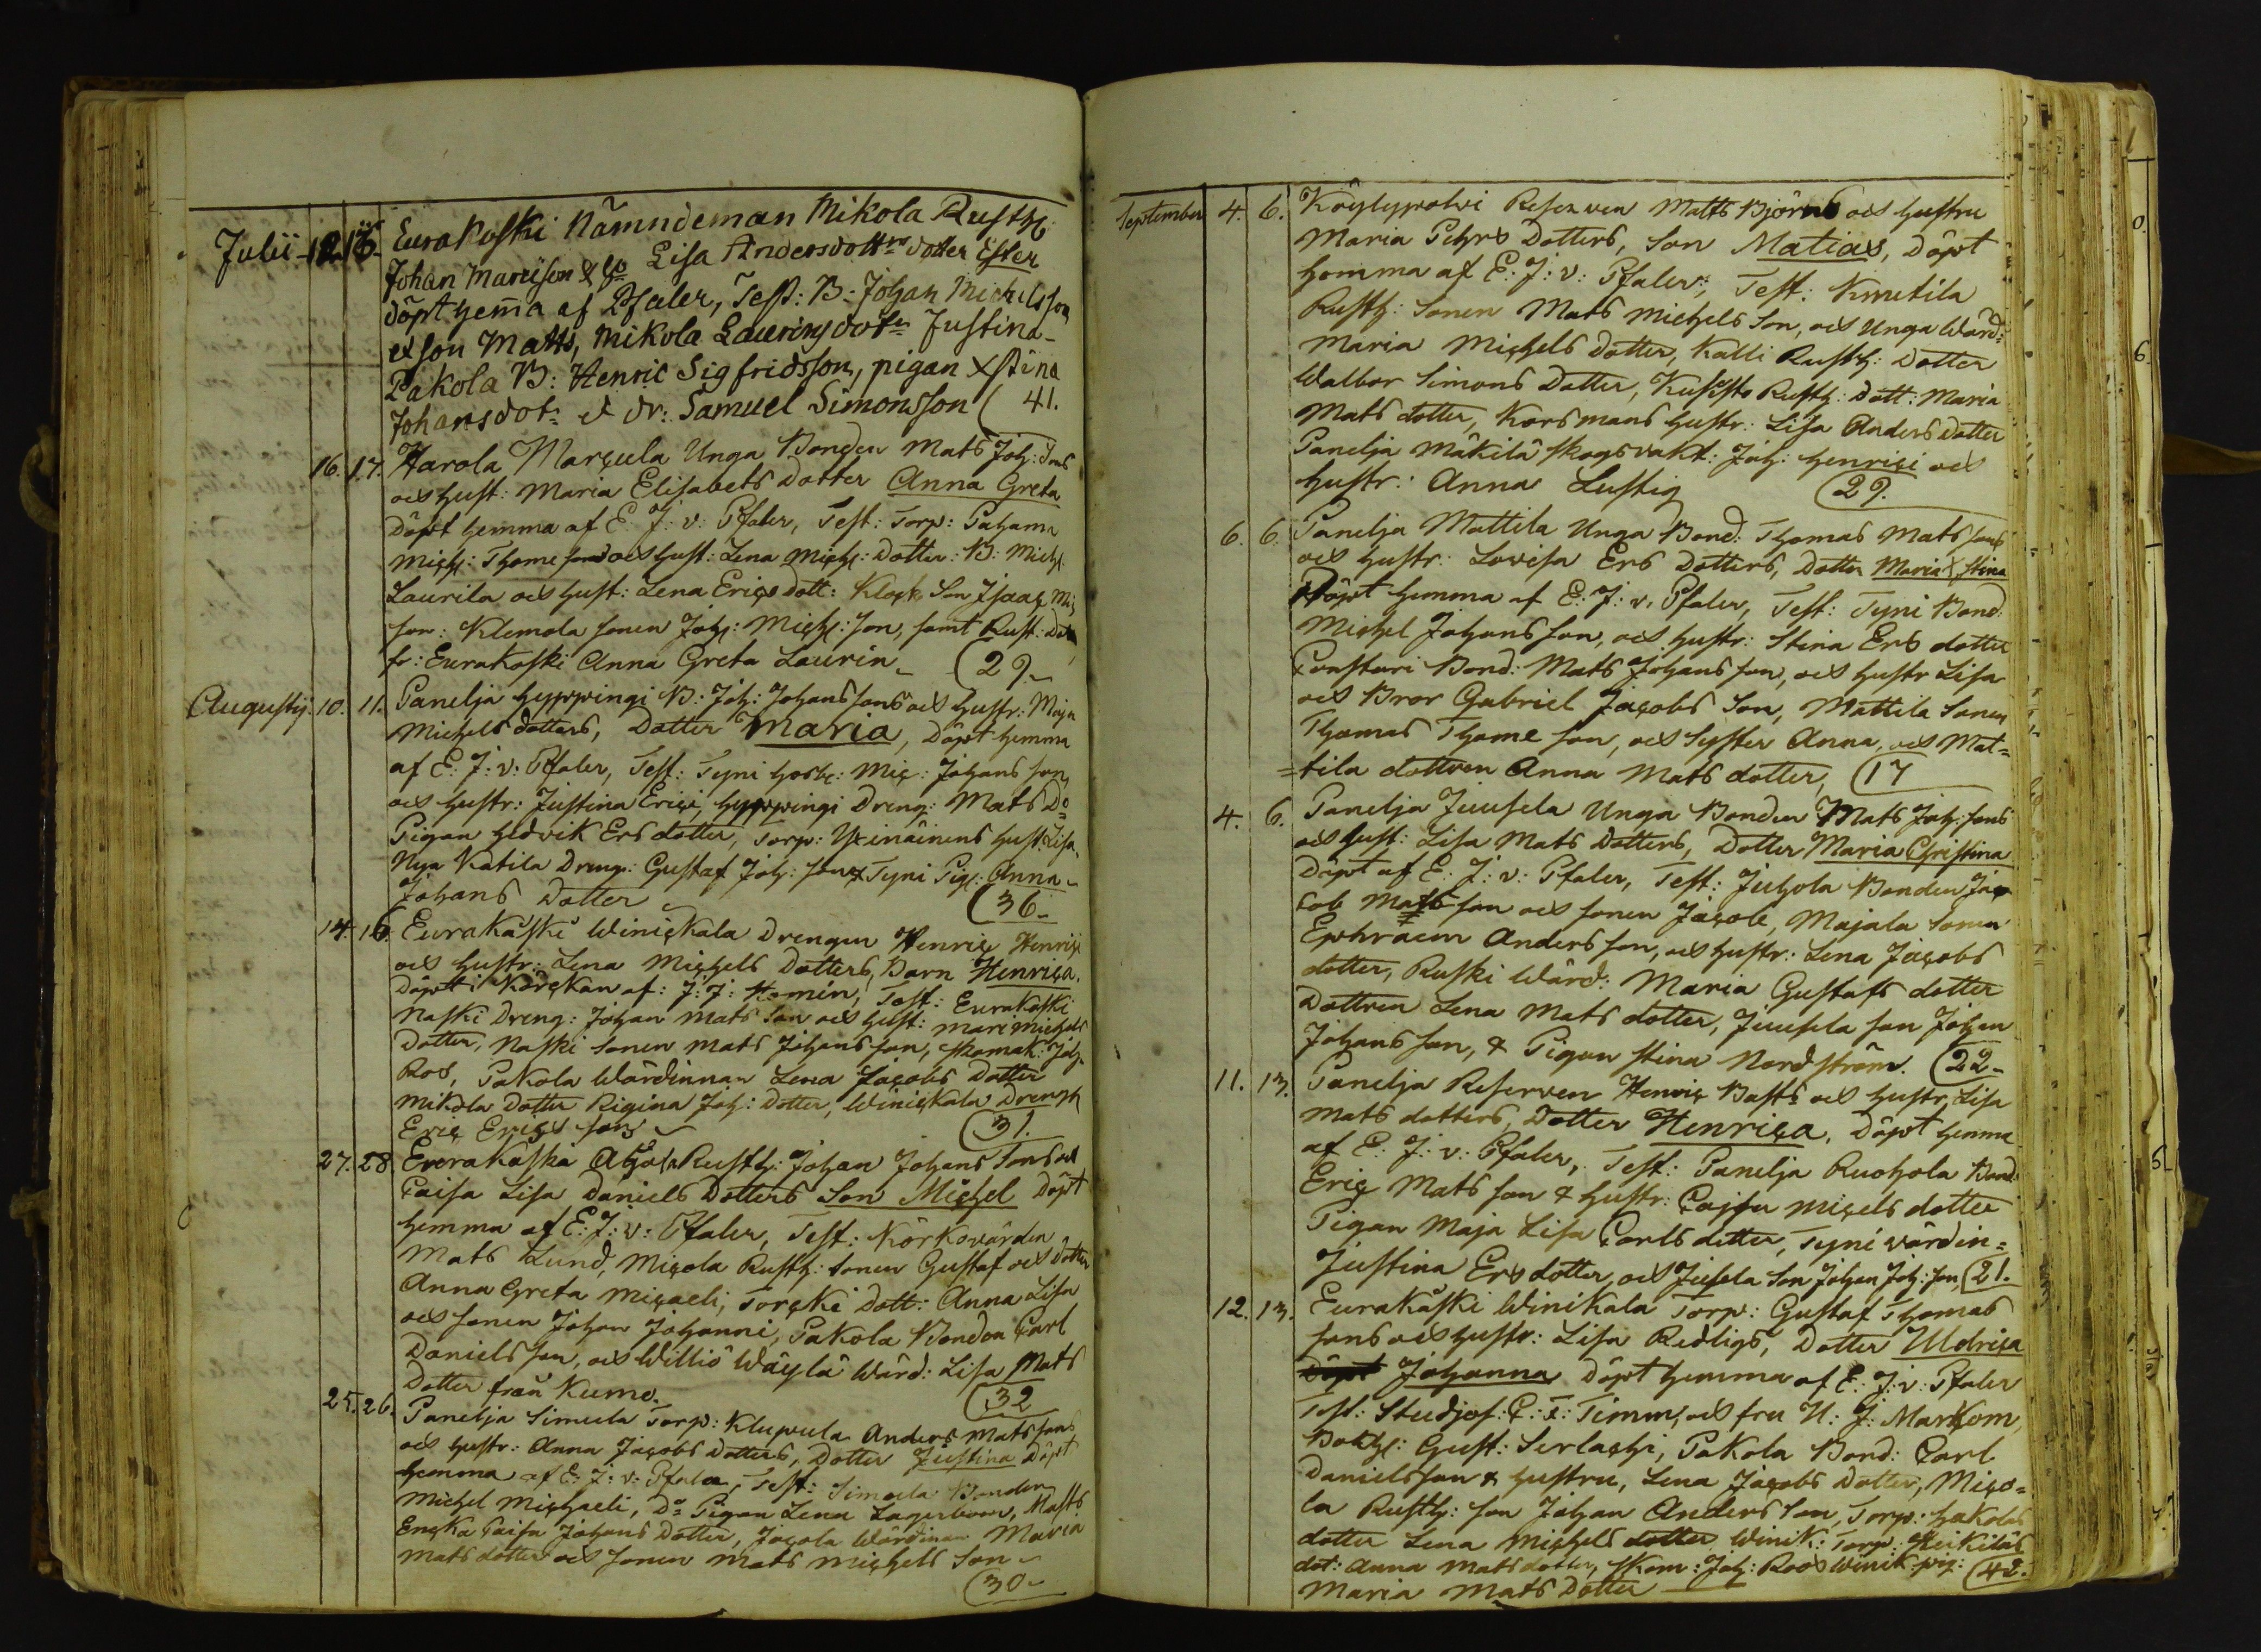 Julii 12. 13. Eurakoski Nämndeman Mikola Rusth:
Johan Mart:son & h: Lisa Andersdottrs dotter Ester
döpt hem̃a af Pfaler, Test: B: Johan Michelsson
et son Matts, Mikola Laurins dotr Justina
Pakola B: Henric Sigfridsson, pigan Xstina
Johansdotr et dr: Samuel Simonsson (41.
16. 17. Harola Marcula Unga Bonden Mats Joh: Sons
och hust: Maria Elisabets Dotter Anna Greta
Döpt hemma af E: J: v: Pfaler, Test: Torp:
Mich: Thome son och hust: Lena Mich: Dotter: B: Mich:
Laurila och hust: Lena Erics dott: Klock: Son Isaac
son: Klemola sonen Joh: Mich: son, samt Rust:
fr: Eurakoski Anna Greta Laurin (29.
Augusty. 10. 11. Panelja hyppingi B: Joh: Johans sons och hustr: Maja
Michels dotters, Dotter Maria, Döpt hemma
af E: J: v: Pfaler, Test: Tyni Mic: Johans son
och hustr: Justina Erici, hyppingi Dreng: Mats Do
Pigan Hedvik Ers dotter, Torp: hust: Lisa
Nya Katila Dreng: Gustaf Joh: son & Tyni Pig: Anna
Johans Dotter (36
14. 16. Eurakåski Winickala Drengen Henric Henrici
och hustr: Lena Michels Dotters, Barn Henrica.
Döpt i Körckan af: J: J: Homén, Test: Eurakåski
Naski Dreng: Johan Mats son och hust: Mari Michels
Dotter, Naski sonen Mats Johans son, skomak: Joh:
Ros, Pakola Wärdinnan Lena Jacobs Dotter
Mikola Dotter Rigina Joh: dotter, Winickala Drengh
Eric Erics son (31.
27. 28. Eurakåska Ahola Rusth: Johan Johans Sons och
Caisa Lisa Daniels Dotters Son Michel Döpt
hemma af E: J: v: Pfaler, Test: Körkovärden
Mats Lund, Micola Rusth: sonen Gustaf och dotter
Anna Greta Micaeli, Torcki Dott: Anna Lisa
och sonen Johan Johanni, Pakola Bonden Carl
Daniels son, och Williö Wäylä Wärd: Lisa Mats
Dotter från Kumo. (32
25. 26. Panelja Simula Torp: Klupula Anders Mats sons
och hustr: Anna Jacobs Dotters, Dotter Justina Döpt
hemma af E: J: v: Pfaler, Test: Simula Bonden
Michel Michaeli, Do Pigan Lena Lagerbom, Matts
Encka Caisa Johans Dotter, Jacola Wärdinan Maria
Mats dotter och sonen Mats Michels Son
(30
September 4. 6. Köylypolvi Reserven Matts Björns och hustru
Maria Pehrs Dotters, son Matias, Döpt
hemma af E: J: v: Pfaler, Test: Kmetila
Rusth: Sonen Mats Michels Son, och Unga Wärd:
Maria Michels Dotter, Kalli Rusth: Dotter
Walbor Simons Dotter, Rusth: Dott: Maria
Mats dotter, Korsmans hustr: Lisa Anders dotter
Panelja Mäkilä skogsvakt: Joh: Henrici och
hustr: Anna Lustig (29.
6. 6. Panelja Mattila Unga Bond: Thomas Mats sons
och hustr: Lovisa Ers Dotters, Dotter Maria Xstina
Döpt hemma af E: J: v: Pfaler, Test: Tyni Bond:
Michel Johans son, och hustr: Stina Ers dotter
Bond: Mats Johans son, och hustr Lisa
och Bror Gabriel Jacobs Son, Mattila Sonen
Thomas Thome son, och Syster Anna, och Mat=
=tila dottren Anna Mats dotter, (17
4. 6. Panelja Juusela Unga Bonden Mats Joh: sons
och hust: Lisa Mats Dotters, Dotter Maria Christina
Döpt af E: J: v: Pfaler, Test: Juhola Bonden Ja
cob Mats son och sonen Jacob, Majala sonen
Ephraim Anders son, och hustr: Lena Jacobs
dotter, Ruski Wärd: Maria Gustafs dotter
Dottren Lena Mats dotter, Juusela son Johan
Johans son, & Pigan Stina Nordström. (22
11. 13. Panelja Reserven Henric Basts och hustr, Lisa
Mats dotters, Dotter Henrica, Döpt hemma
af E: J: v: Pfaler, Test: Panelja Ruohola Bond:
Eric Mats son & hustr: Cajsa Micels dotter
Pigan Maja Lisa Carls dotter, Tyni värdin=
Justina Ers dotter, och Jusela Son Johan Joh: son, (21.
12. 13. Eurakåski Winikala Torp: Gustaf Thomas
sons och hustr: Lisa Redligs, Dotter Uldrica
Döpt Johanna Döpt hemma af E: J: v: Pfaler
Test: Studjos: C: F: Timm, och fru U: J: Markom
Bokh: Gust: Serlachi, Pakola Bond: Carl
Danielsson & hustru, Lena Jacobs Dotter, Mico=
la Rusth: son Johan Anders Son, Torp: hakolas
dotter Lena Michels dotter Winik: Torp: Heikiläs
dot: Anna Mats dotter, Skom: Joh: Roos Winik: pig: (42.
Maria Mats Dotter